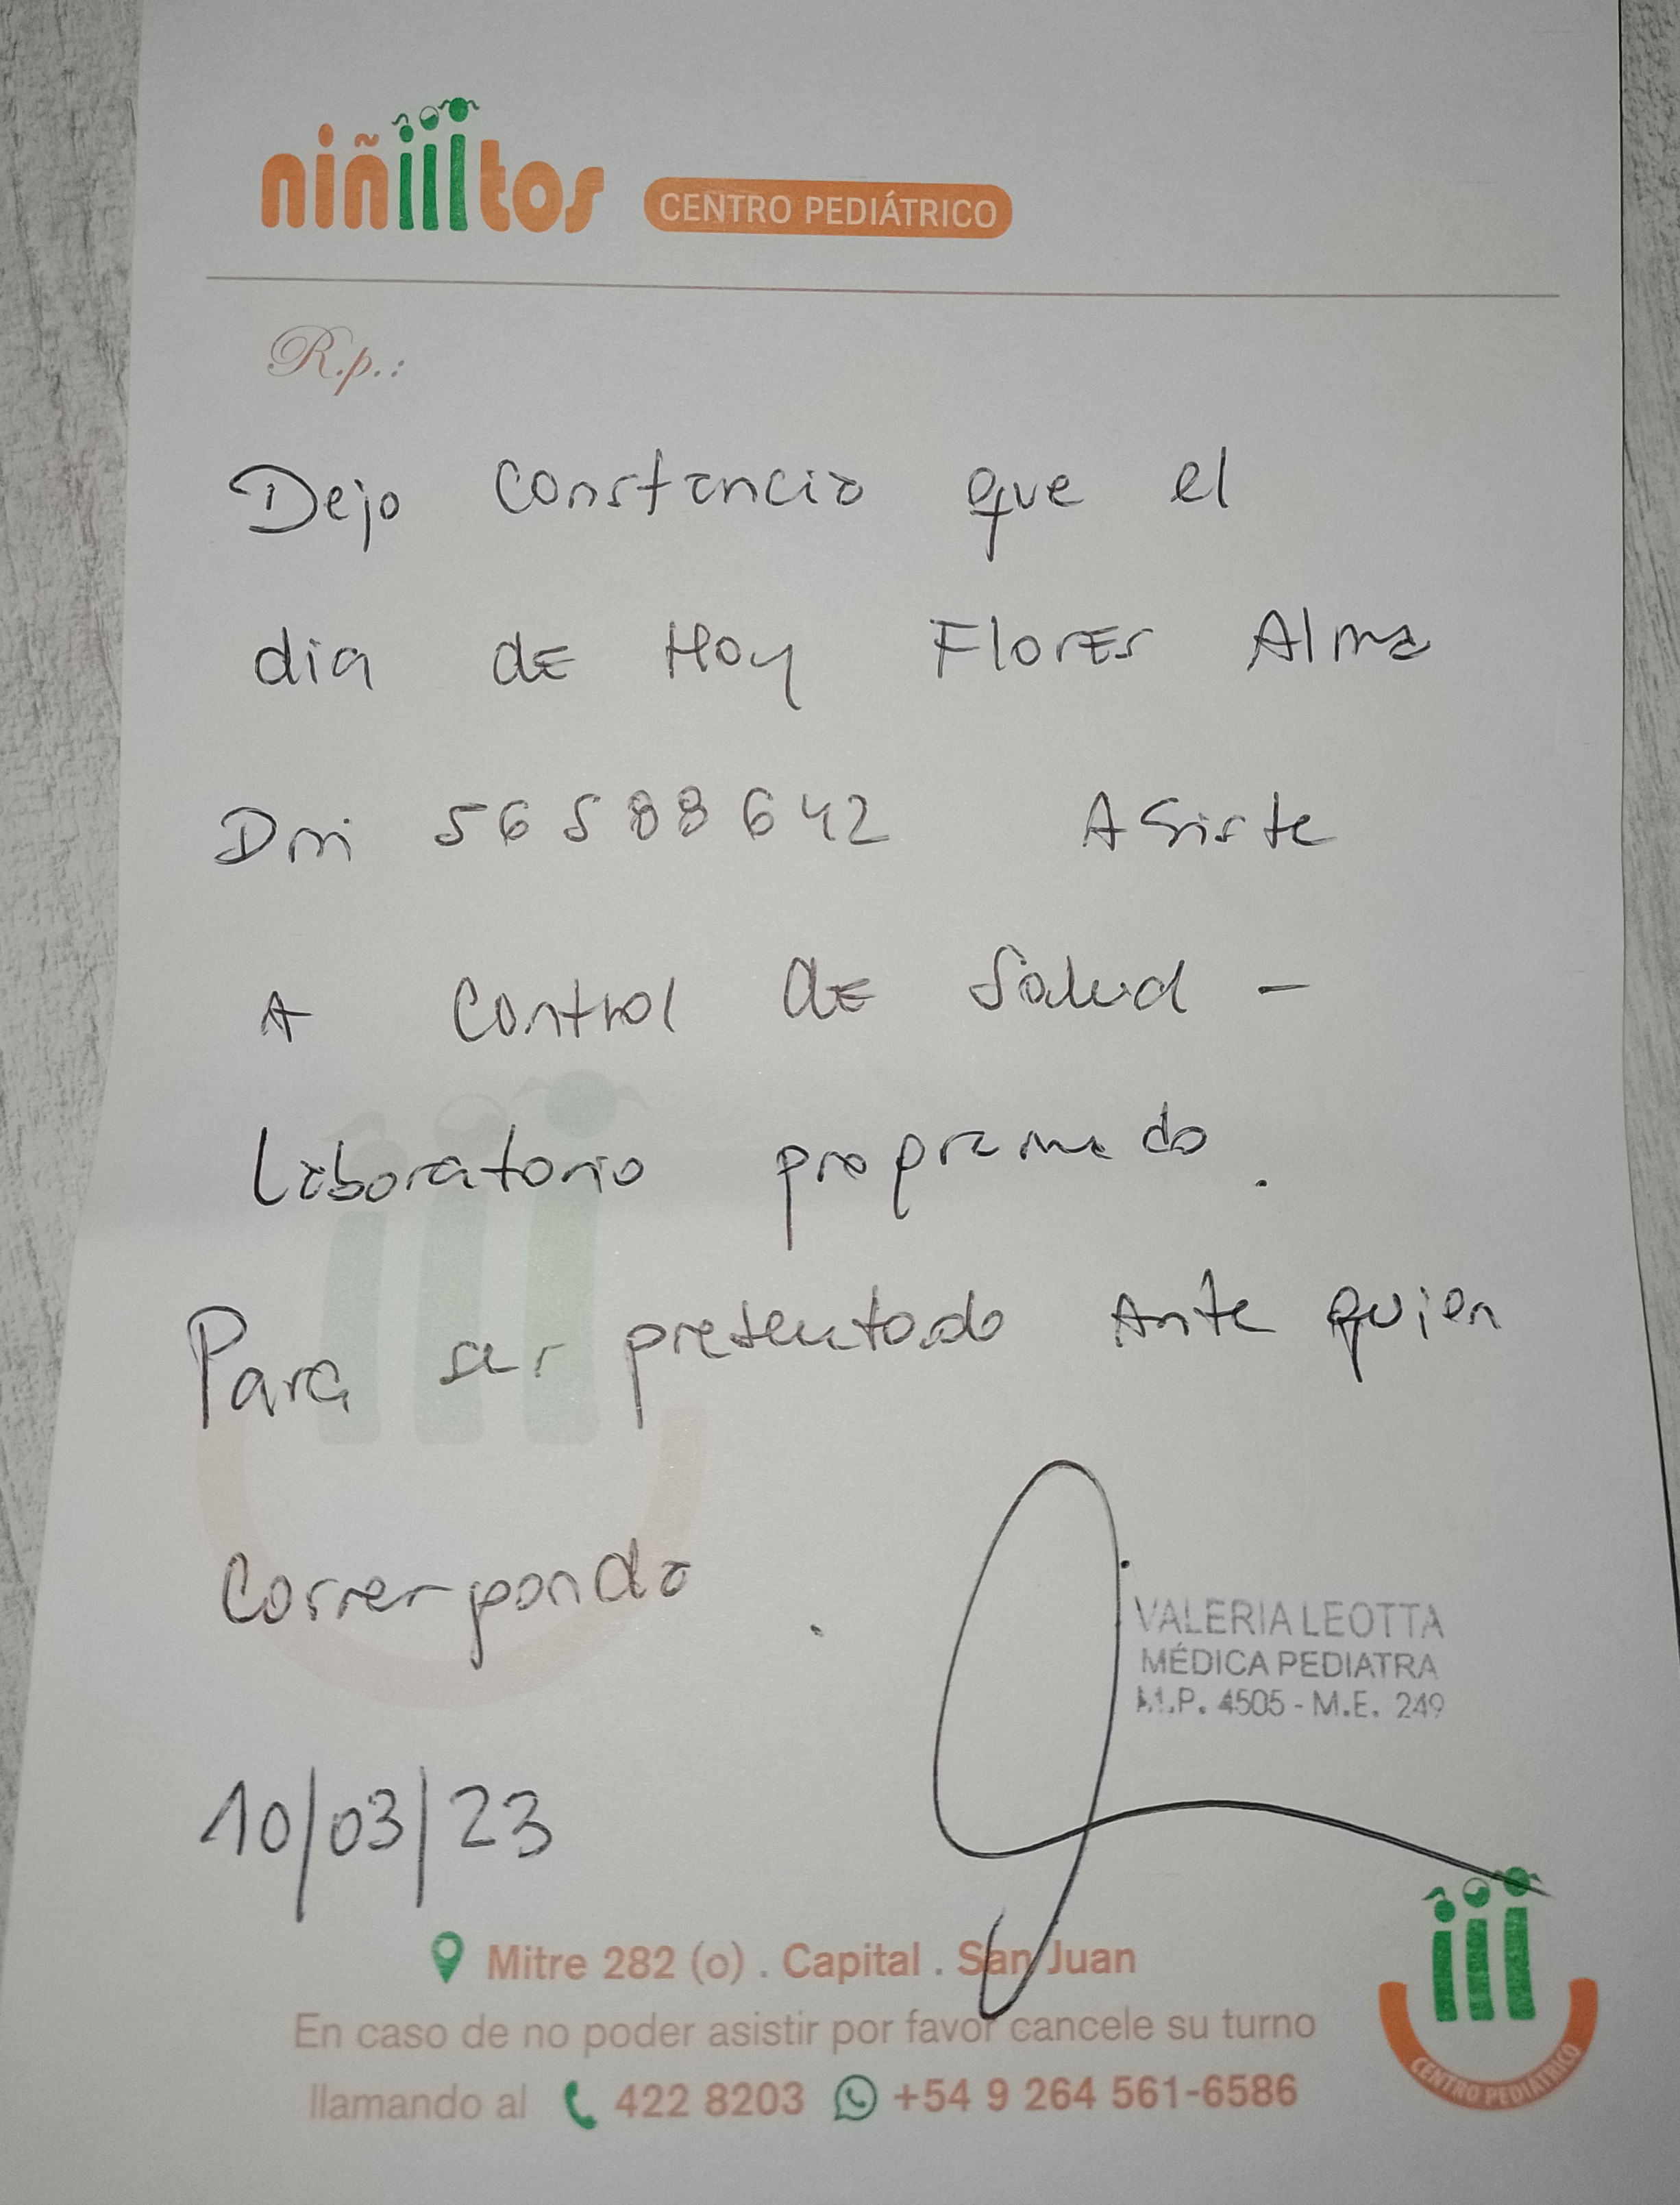 niñiiitos CENTRO PEDIÁTRICO
R.p.:
Dejo constancia que el
dia de Hoy Flores Alma
Dni 56588642 Asiste
A Control de Salud -
Laboratorio programado.
Para ser presentado Ante quien
corresponda.
VALERIA LEOTTA
MÉDICA PEDIATRA
M.P. 4505 - M.E. 249
10/03/23
Mitre 282 (o) . Capital . San Juan
En caso de no poder asistir por favor cancele su turno
llamando al 422 8203 +54 9 264 561-6586
CENTRO PEDIÁTRICO